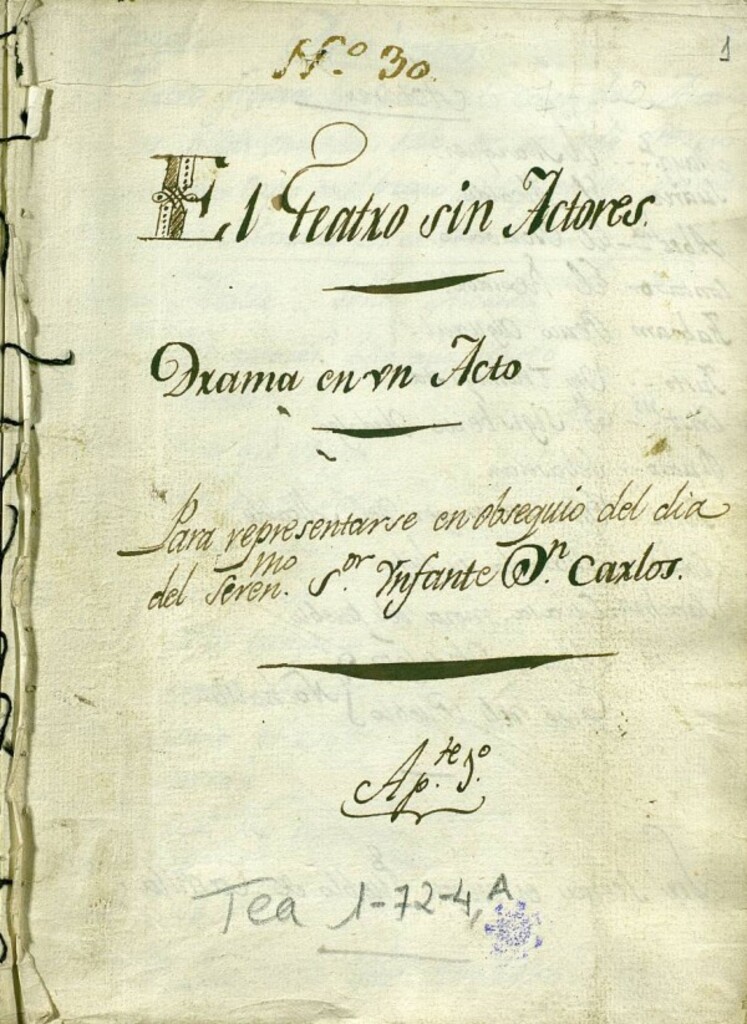 N.º 30.
1
El teatro sin Actores.
Drama en vn Acto
Para representarse en obsequio del dia
del Seren.mo S.or Ynfante D.n Carlos.
Ap.te 1.º
Tea 1-72-4, A